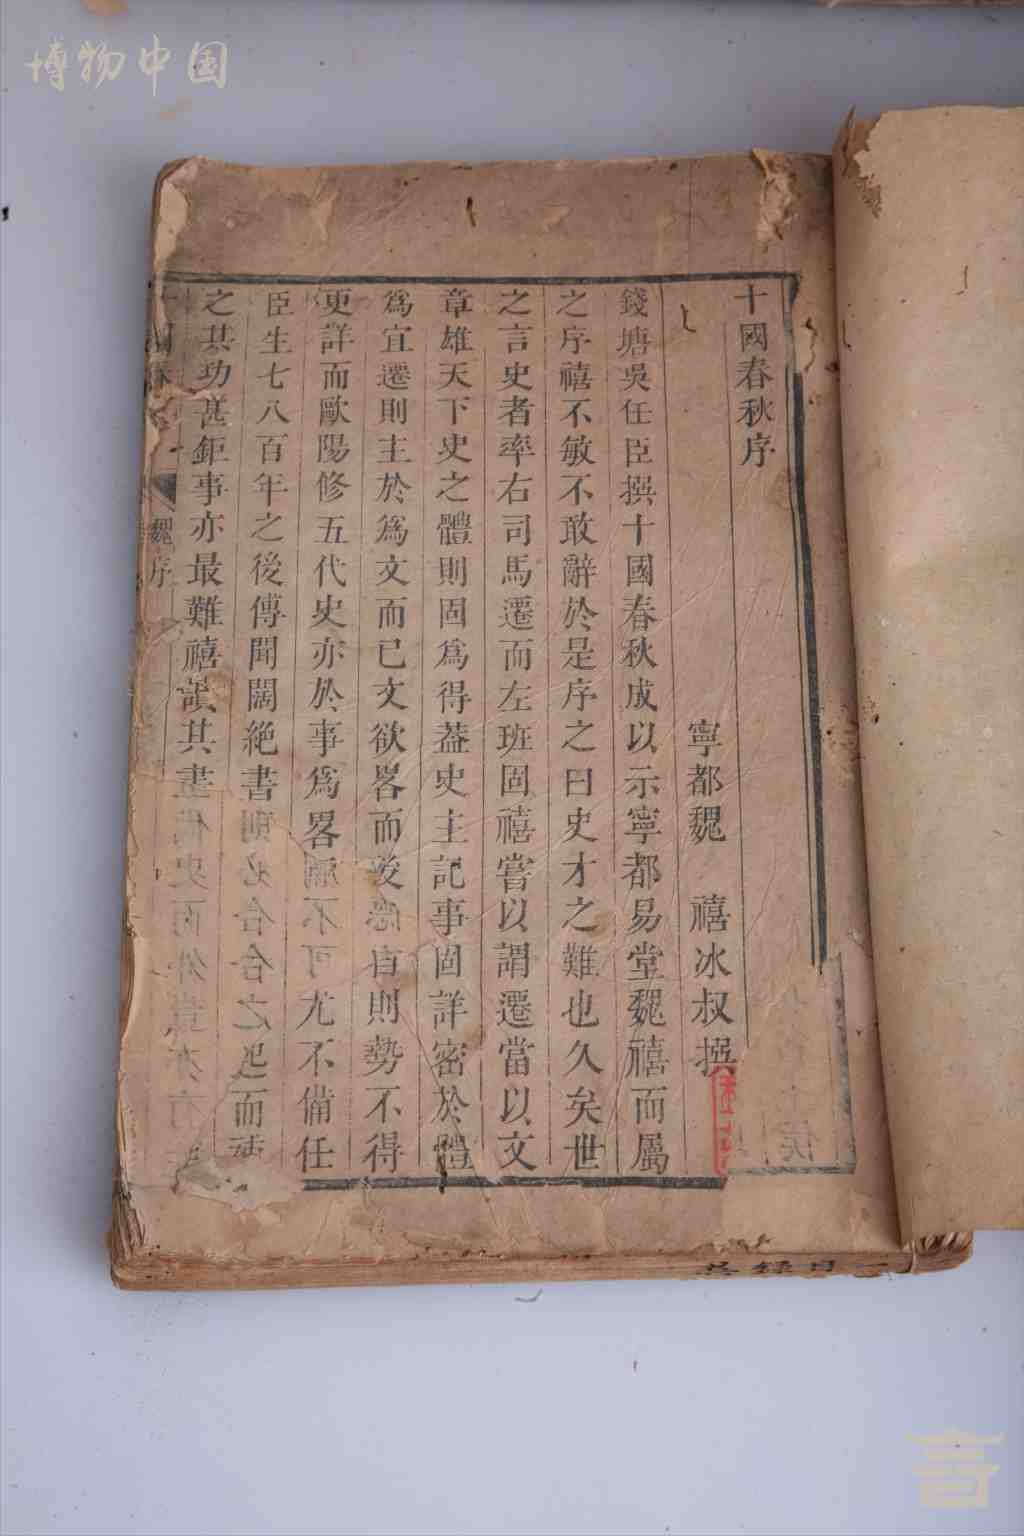 博物中国
十國春秋序
寧都魏 禧冰叔撰
錢塘吳任臣撰十國春秋成以示寧都易堂魏禧而屬
之序禧不敏不敢辭於是序之曰史才之難也久矣世
之言史者率右司馬遷而左班固禧嘗以謂遷當以文
章雄天下史之體則固爲得葢史主記事固詳密於體
爲宜遷則主於爲文而已文欲畧而後 自則勢不得
更詳而歐陽修五代史亦於事爲畧 不可尤不備任
臣生七八百年之後傳聞闊絕書 而
之其功甚鉅事亦最難禧讀其書
魏序